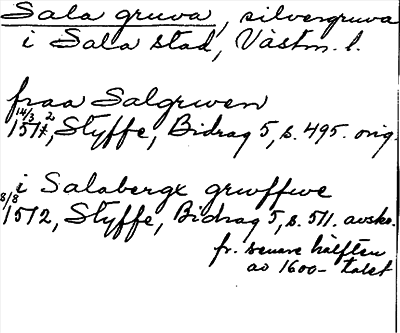 Sala gruva, silvergruva
i Sala stad, Västm. l.
fraa Salgrwen
14/3 1512, Styffe, Bidrag 5, s. 495. orig.
i Salabergx grwffwe
8/8 1512, Styffe, Bidrag 5, s. 511. avskr.
fr. senare hälften
av 1600-talet